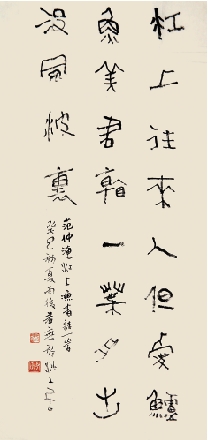 江上往來人但爱鱸
魚美君看一葉舟出
没風波裏
范仲淹江上漁者詩一首
癸巳初夏雨後書